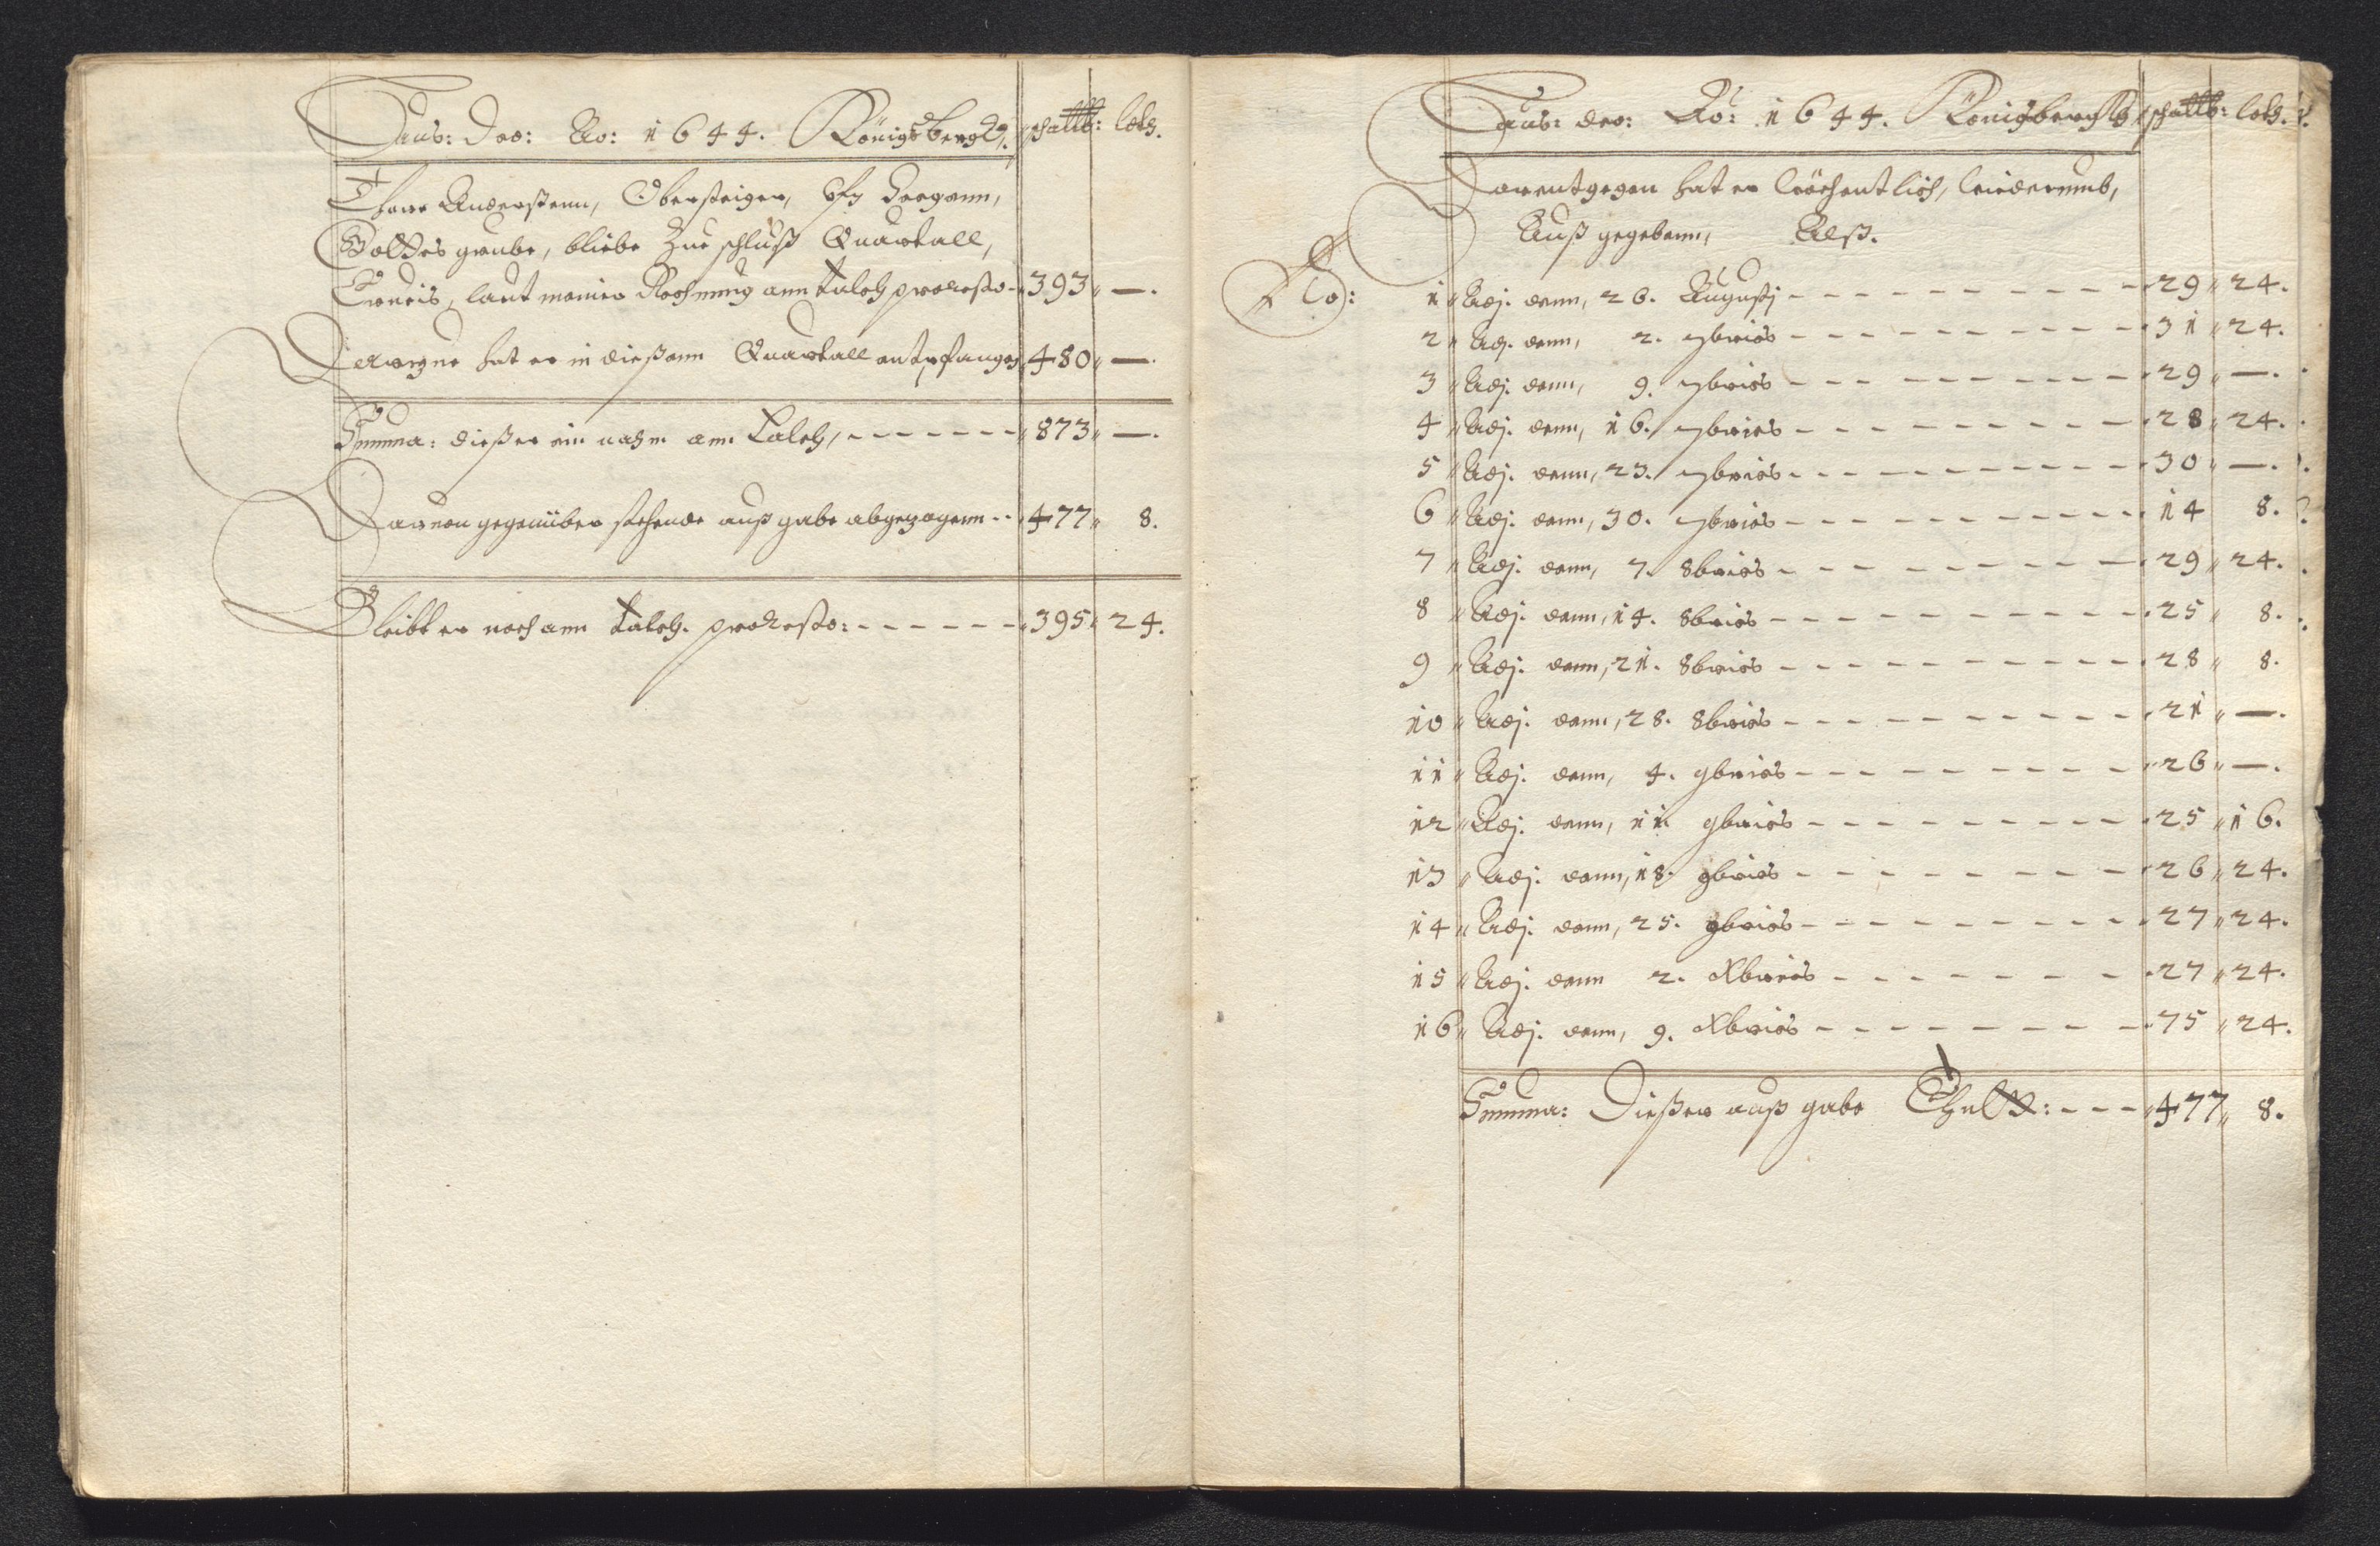 Laus: Deo: Ao: 1644. Königsbergk, schallb: loth.
Thore Anderßenn, Obersteiger, vfs Hoegenn,
Gottes grube, bliebe Zue schluß Quartall,
Crucis, laut meiner Rechnung ann talch pro resto - 393 " —.
Derwegne hat er in dießem Quartall entpfangen 480 " —.
Summa: dießer ein nahm ann Talch, - - - 873 " —.
Daruon gegenüber stehende auß gabe abgezogenn - - 477 " 8.
Bleibt er noch ann talch. pro resto: - - - 395 " 24.
Laus: deo: Ao: 1644. Königsbergk schallb: loth.
Darentgegen hat er wöchentlich, wiederumb,
Auß gegebenn, Alß.
No: 1 " Adj. denn, 26. Augustj - - - 29 " 24.
2 " Adj. denn, 2. 7bris - - - 31 " 24.
3 " Adj. denn, 9. 7bris - - - 29 " —.
4 " Adj. denn, 16. 7bris - - - 28 " 24.
5 " Adj. denn, 23. 7bris - - - 30 " —.
6 " Adj. denn, 30. 7bris - - - 14 8.
7 " Adj. denn, 7. 8bris - - - 29 " 24.
8 " Adj. denn, 14. 8bris - - - 25 " 8.
9 " Adj. denn, 21. 8bris - - - 28 " 8.
10 " Adj. denn, 28. 8bris - - - 21 " —.
11 " Adj. denn, 4. 9bris - - - 26 " —.
12 " Adj. denn, 11. 9bris - - - 25 " 16.
13 " Adj. denn, 18. 9bris - - - 26 " 24.
14 " Adj. denn, 25. 9bris - - - 27 " 24.
15 " Adj. denn 2. Xbris - - - 27 " 24.
16 " Adj. denn, 9. Xbris - - - 75 " 24.
Summa: Dießer auß gabe - - - 477 " 8.